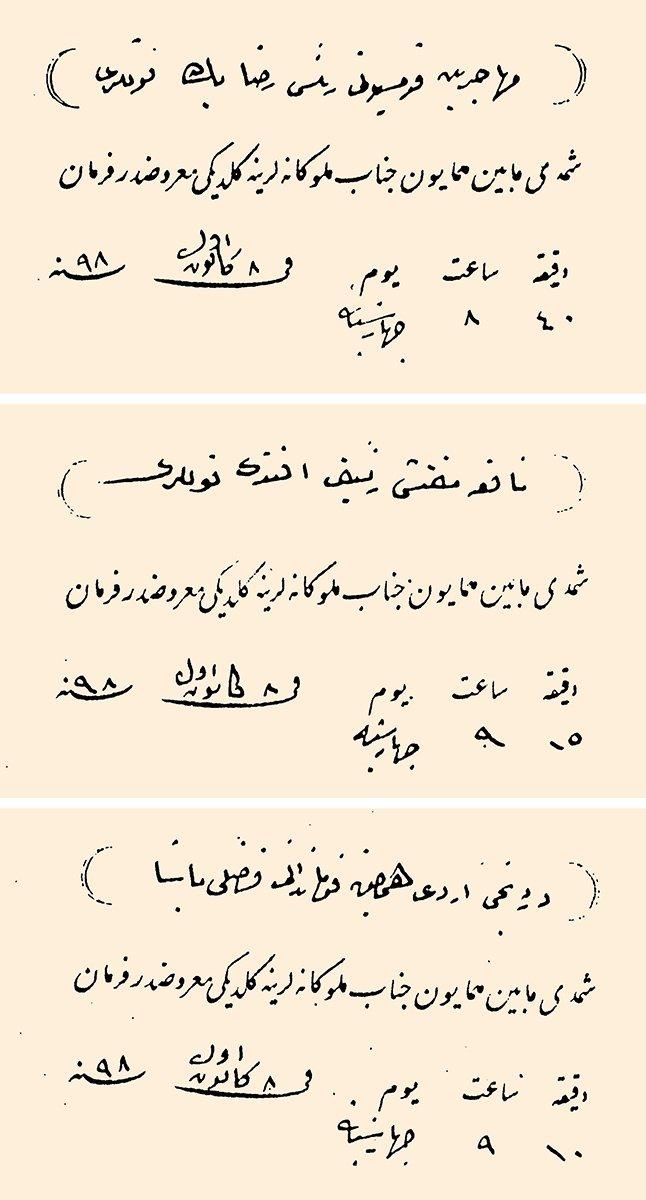 (مهاجرین قومیسیونی رئیسی رضا بك قوللری)
شمدی مابین همایون جناب ملوكانه لرینه كلدیكی معروضدر فرمان
دقیقه ساعت یوم فی ٨ كانون اول سنه ٩٨
٤٠ ٨ چهارشنبه
(نافعه مفتشی افندی قوللری)
شمدی مابین همایون جناب ملوكانه لرینه كلدیكی معروضدر فرمان
دقیقه ساعت یوم فی ٨ كانون اول سنه ٩٨
١٥ ٩ چهارشنبه
(دردنجی اردوی همایون قوماندانی فضلی پاشا)
شمدی مابین همایون جناب ملوكانه لرینه كلدیكی معروضدر فرمان
دقیقه ساعت یوم فی ٨ كانون اول سنه ٩٨
١٠ ٩ چهارشنبه